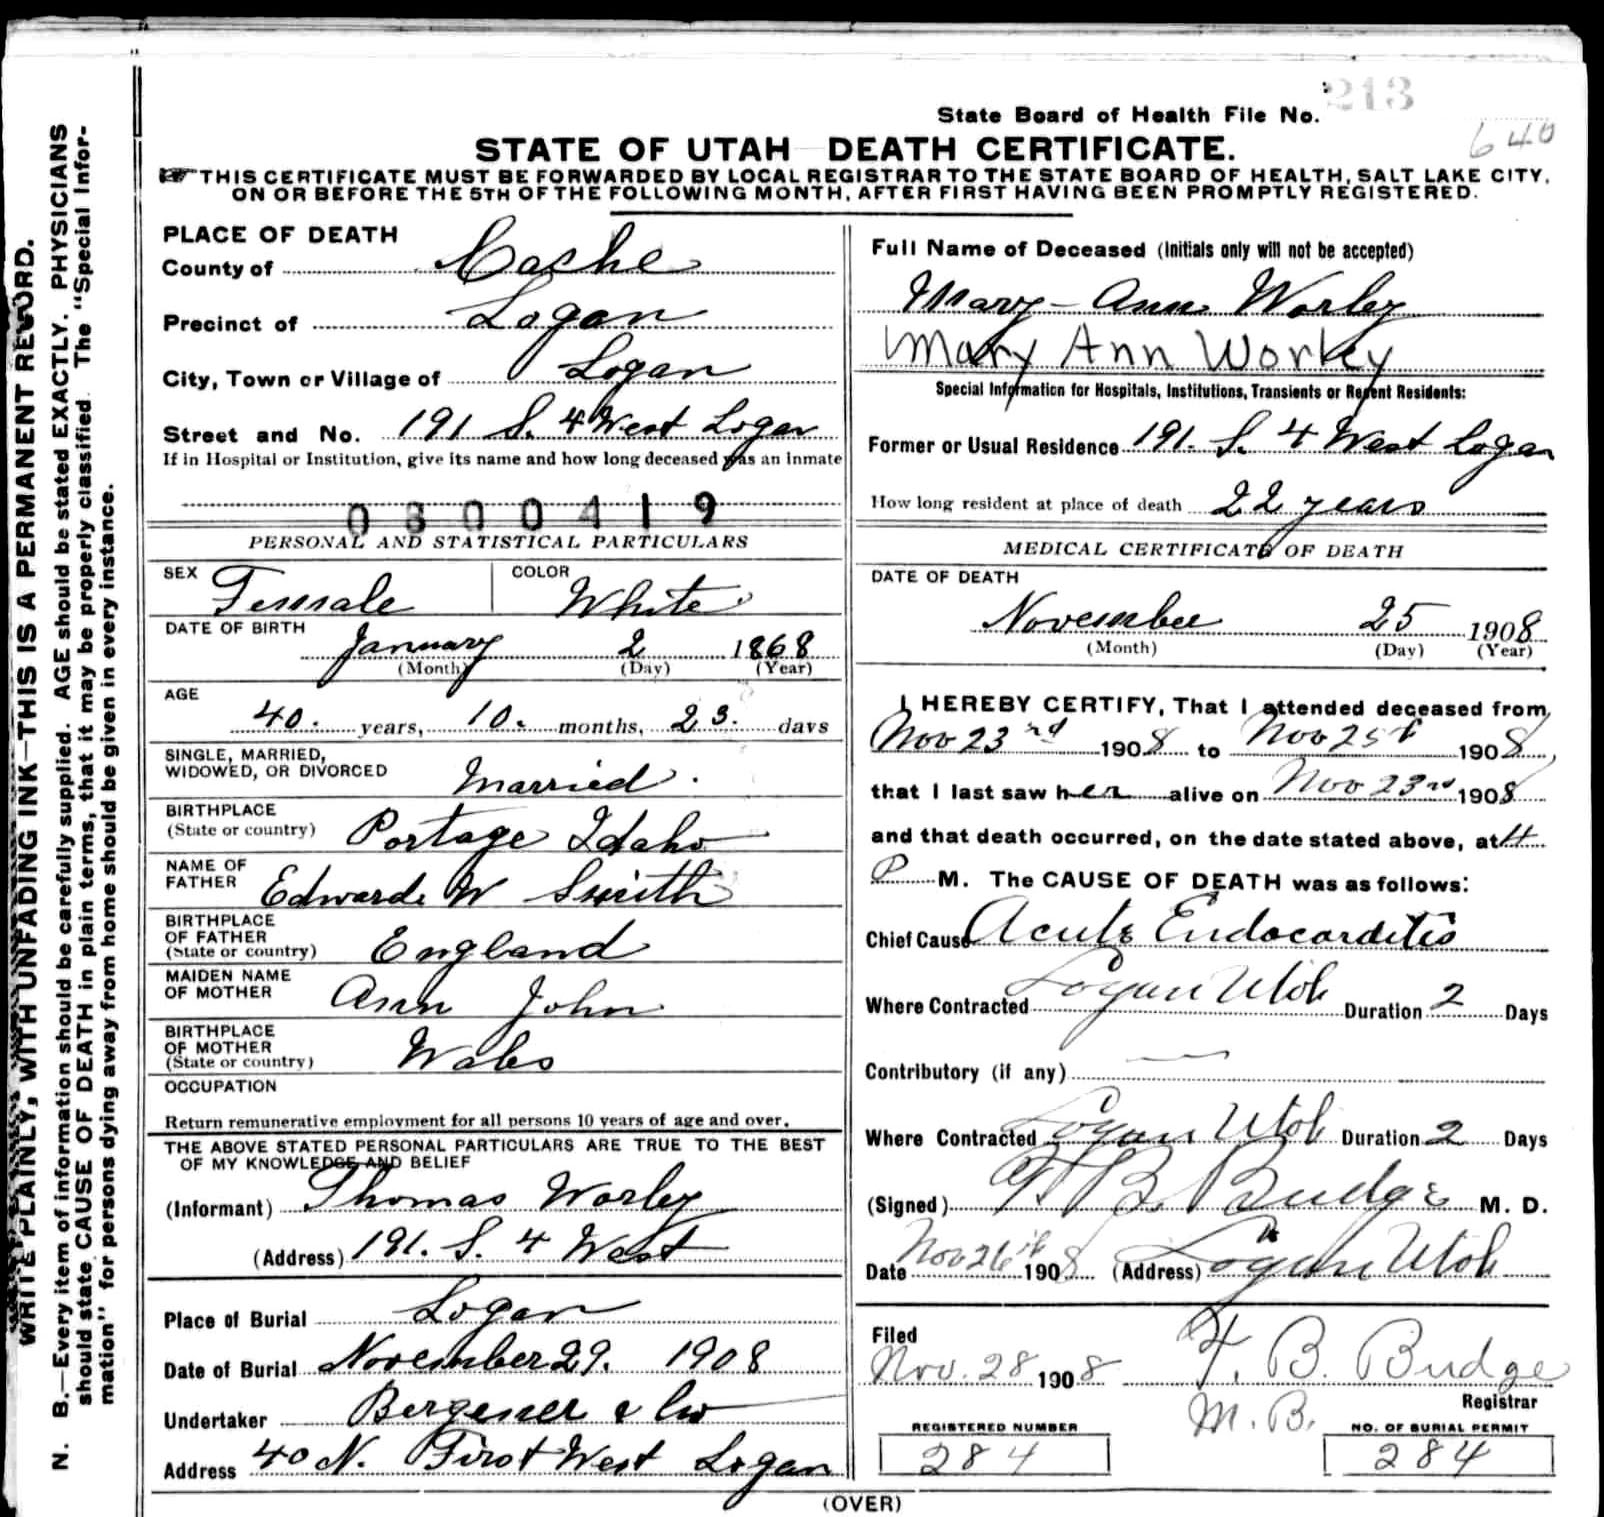 State Board of Health File No. 213
640
STATE OF UTAH DEATH CERTIFICATE.
THIS CERTIFICATE MUST BE FORWARDED BY LOCAL REGISTRAR TO THE STATE BOARD OF HEALTH, SALT LAKE CITY,
ON OR BEFORE THE 5TH OF THE FOLLOWING MONTH, AFTER FIRST HAVING BEEN PROMPTLY REGISTERED.
WRITE PLAINLY, WITH UNFADING INK—THIS IS A PERMANENT RECORD.
N. B.—Every item of information should be carefully supplied. AGE should be stated EXACTLY. PHYSICIANS
should state CAUSE OF DEATH in plain terms, that it may be properly classified. The "Special Infor-
mation" for persons dying away from home should be given in every instance.
PLACE OF DEATH
County of Cache
Precinct of Logan
City, Town or Village of Logan
Street and No. 191 S. 4 West Logan
If in Hospital or Institution, give its name and how long deceased was an inmate
0800419
PERSONAL AND STATISTICAL PARTICULARS
SEX Female COLOR White
DATE OF BIRTH
January 2 1868
(Month) (Day) (Year)
AGE
40. years, 10. months, 23. days
SINGLE, MARRIED,
WIDOWED, OR DIVORCED Married.
BIRTHPLACE
(State or country) Portage Idaho
NAME OF
FATHER Edward W Smith
BIRTHPLACE
OF FATHER
(State or country) England
MAIDEN NAME
OF MOTHER Ann John
BIRTHPLACE
OF MOTHER
(State or country) Wales
OCCUPATION
Return remunerative employment for all persons 10 years of age and over.
THE ABOVE STATED PERSONAL PARTICULARS ARE TRUE TO THE BEST
OF MY KNOWLEDGE AND BELIEF
(Informant) Thomas Worley
(Address) 191. S. 4 West
Place of Burial Logan
Date of Burial November 29. 1908
Undertaker & Co
Address 40 N. First West Logan
Full Name of Deceased (Initials only will not be accepted)
Mary-Ann Worley
Mary Ann Worley
Special Information for Hospitals, Institutions, Transients or Recent Residents:
Former or Usual Residence 191. S. 4 West Logan
How long resident at place of death 22 years
MEDICAL CERTIFICATE OF DEATH
DATE OF DEATH
November 25 1908
(Month) (Day) (Year)
I HEREBY CERTIFY, That I attended deceased from
Nov 23rd 1908 to Nov 25th 1908,
that I last saw her alive on Nov 23rd 1908
and that death occurred, on the date stated above, at 4
P M. The CAUSE OF DEATH was as follows:
Chief Cause Acute Endocarditis
Where Contracted Logan Utah Duration 2 Days
Contributory (if any) —
Where Contracted Logan Utah Duration 2 Days
(Signed) F B. Budge M. D.
Date Nov 26th 1908 (Address) Logan Utah
Filed
Nov. 28 1908 F. B. Budge
Registrar
M. B.
REGISTERED NUMBER
284
NO. OF BURIAL PERMIT
284
(OVER)